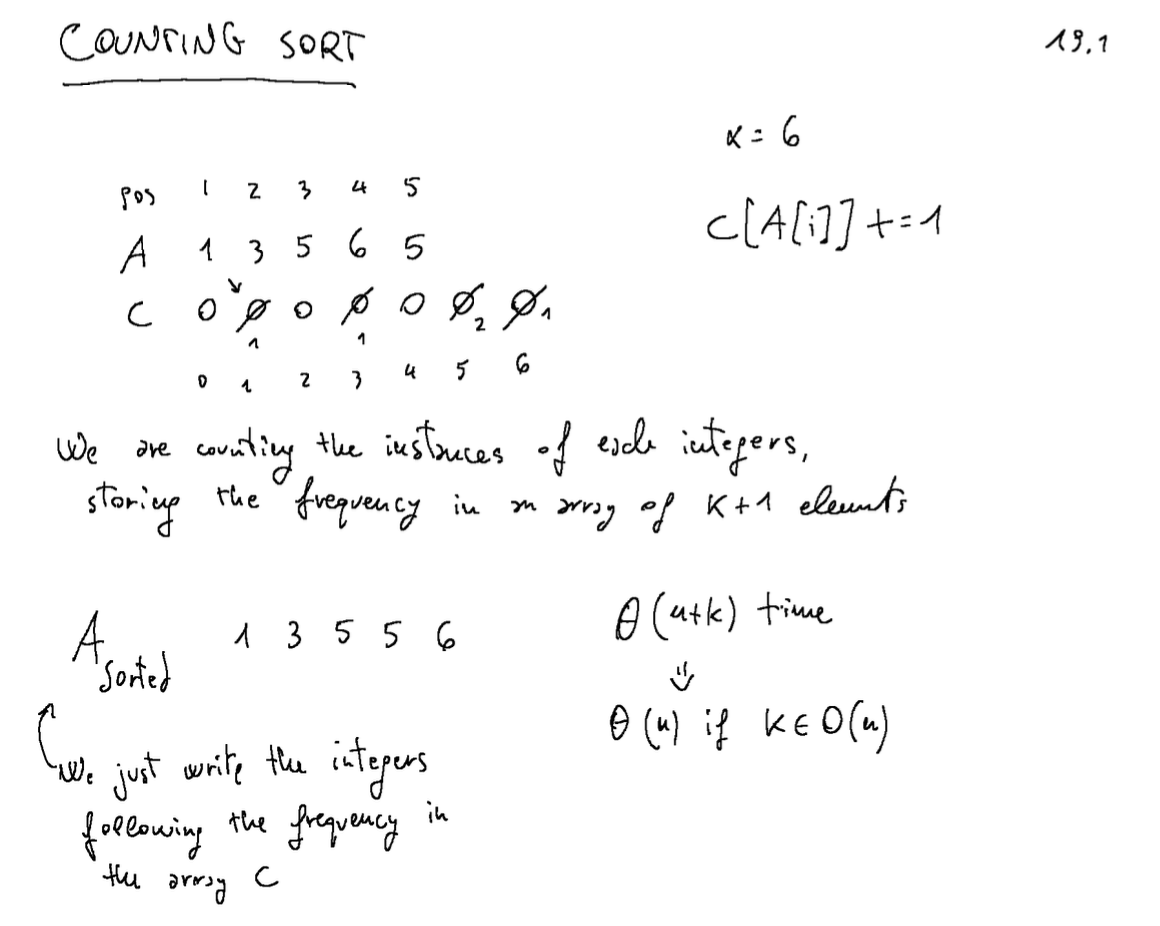 COUNTING SORT
19.1
K = 6
pos 1 2 3 4 5
C[A[i]] += 1
A 1 3 5 6 5
C 0 0 0 0 0 0 2 0 1
1 1
0 1 2 3 4 5 6
We are counting the instances of each integers,
storing the frequency in an array of K+1 elements
A sorted 1 3 5 5 6
θ(n+k) time
⇓
θ(n) if K ∈ O(n)
We just write the integers
following the frequency in
the array C